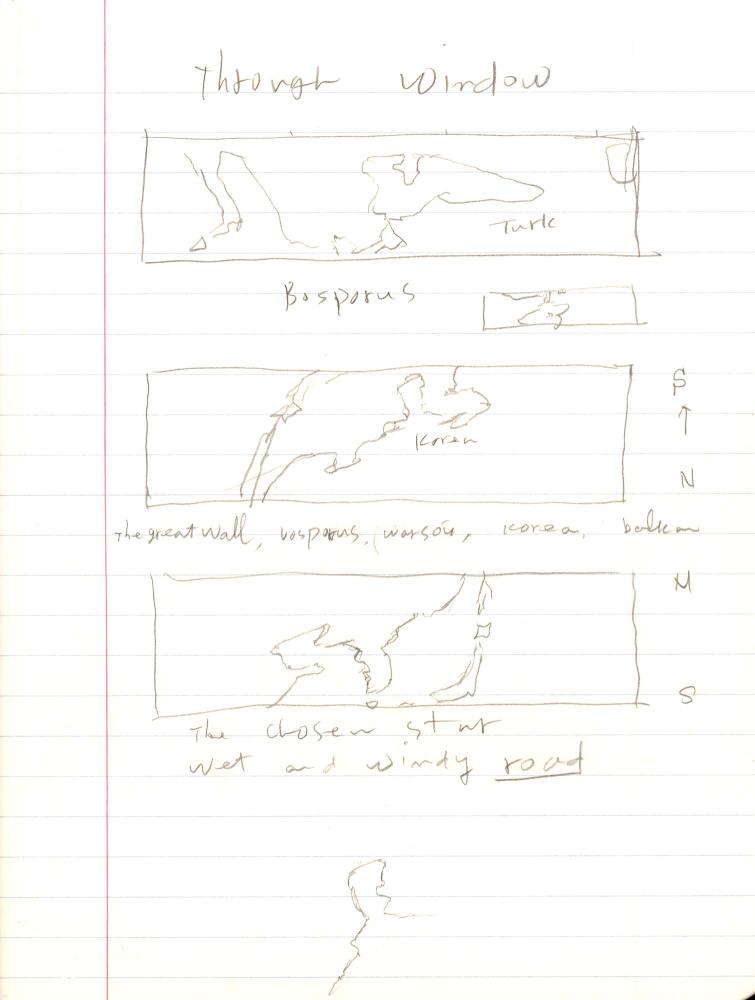 Through Window
Turk
Bosporus
S
Korea
N
The great Wall, bosporus, warsow, korea, balkan
N
S
The chosen star
wet and windy road